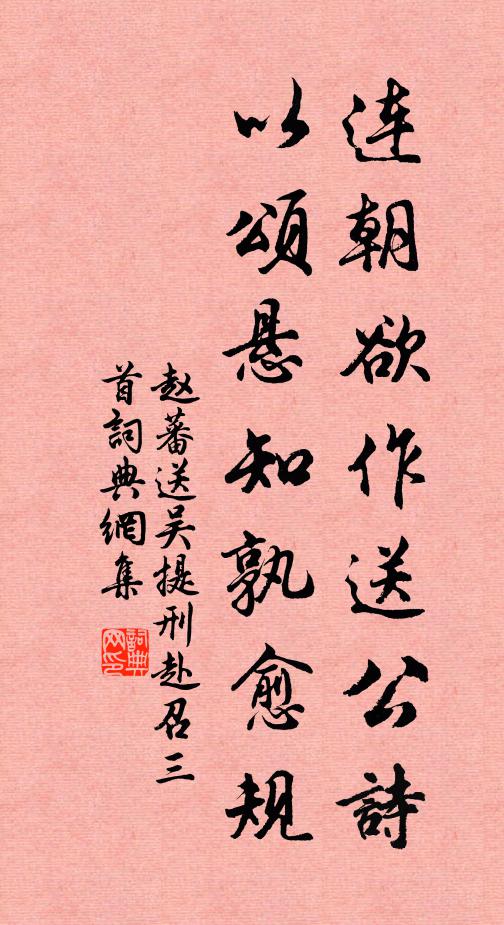 連朝欲作送公詩
以頌悬知孰愈規
赵蕃送吴提刑赴召三
首詞典網集
詞典网印